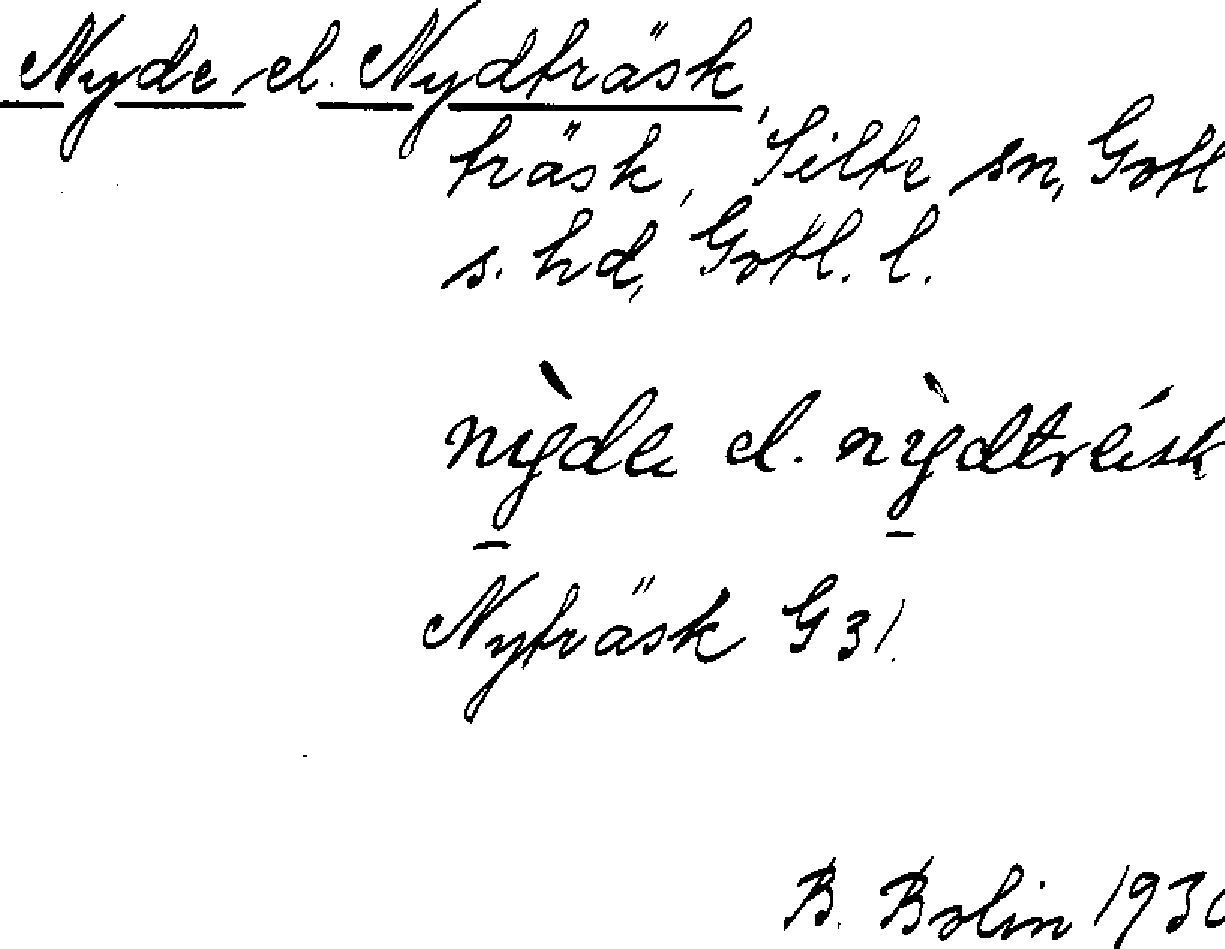 Nyde el. Nydträsk,
träsk, Silte sn, Gotl
s. hd, Gotl. l.
nỳde el. nỳdträsk
Nyträsk G 31.
B. Bolin 193